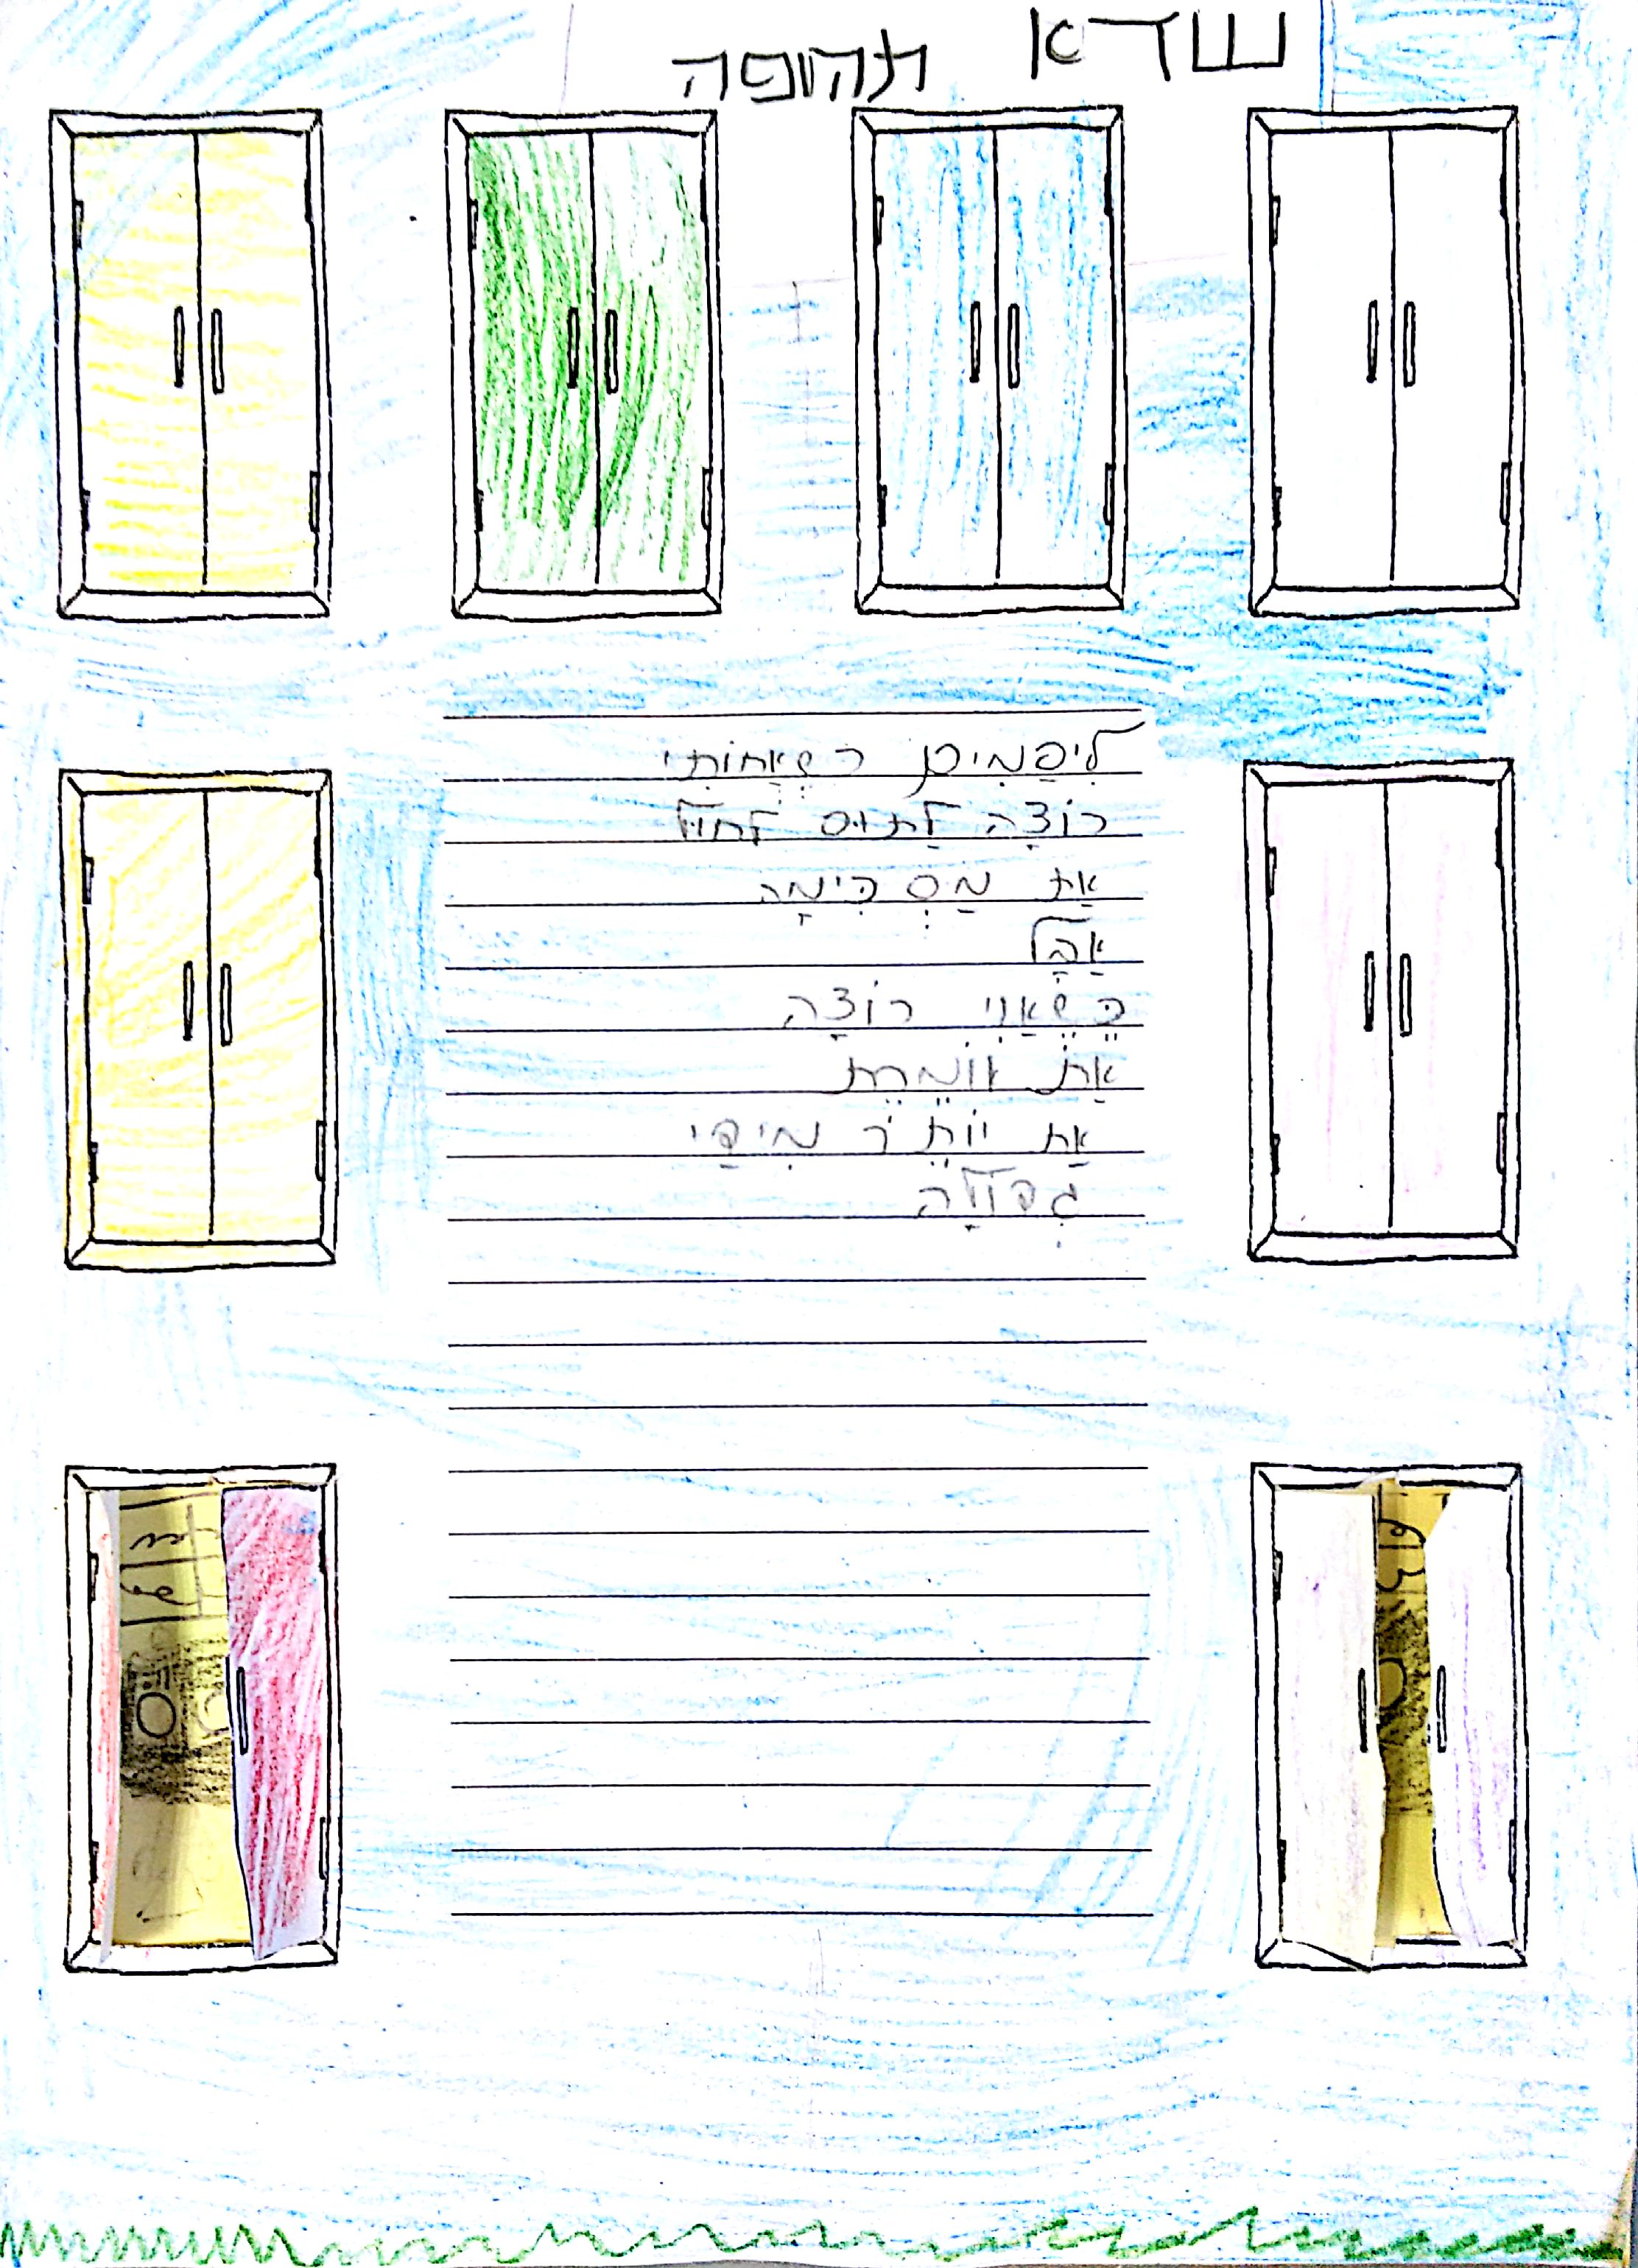 שדא תהופה
לִיפַמִים כשְאַחוֹתִי
רוֹצָה לָתוּס לחוּל
אַת מַסְכִּימָה
אַבָל
כֶּשֶאַנִי רוֹצָה
אַת אוֹמֵרֶת
אַת יוֹתֵר מִידַי
גְדוֹלָה